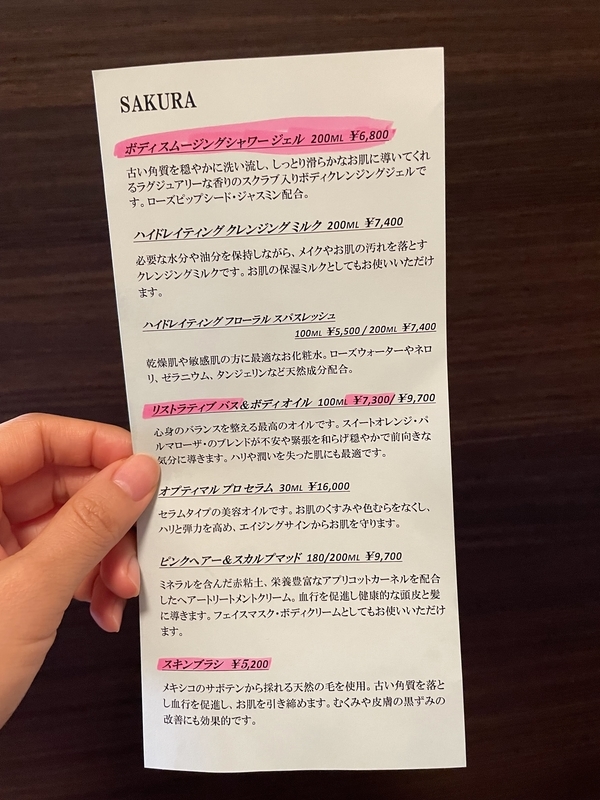 SAKURA
ボディスムージングシャワージェル 200ML ￥6,800
古い角質を穏やかに洗い流し、しっとり滑らかなお肌に導いてくれ
るラグジュアリーな香りのスクラブ入りボディクレンジングジェルで
す。ローズピップシード・ジャスミン配合。
ハイドレイティング クレンジング ミルク 200ML ￥7,400
必要な水分や油分を保持しながら、メイクやお肌の汚れを落とす
クレンジングミルクです。お肌の保湿ミルクとしてもお使いいただけ
ます。
ハイドレイティング フローラル スパスレッシュ
100ML ￥5,500 / 200ML ￥7,400
乾燥肌や敏感肌の方に最適なお化粧水。ローズウォーターやネロ
リ、ゼラニウム、タンジェリンなど天然成分配合。
リストラティブ バス&ボディオイル 100ML ￥7,300/ ￥9,700
心身のバランスを整える最高のオイルです。スイートオレンジ・パ
ルマローザ・のブレンドが不安や緊張を和らげ穏やかで前向きな
気分に導きます。ハリや潤いを失った肌にも最適です。
オプティマル プロ セラム 30ML ￥16,000
セラムタイプの美容オイルです。お肌のくすみや色むらをなくし、
ハリと弾力を高め、エイジングサインからお肌を守ります。
ピンクヘアー&スカルプマッド 180/200ML ￥9,700
ミネラルを含んだ赤粘土、栄養豊富なアプリコットカーネルを配合
したヘアートリートメントクリーム。血行を促進し健康的な頭皮と髪
に導きます。フェイスマスク・ボディクリームとしてもお使いいただけ
ます。
スキンブラシ ￥5,200
メキシコのサボテンから採れる天然の毛を使用。古い角質を落と
し血行を促進し、お肌を引き締めます。むくみや皮膚の黒ずみの
改善にも効果的です。